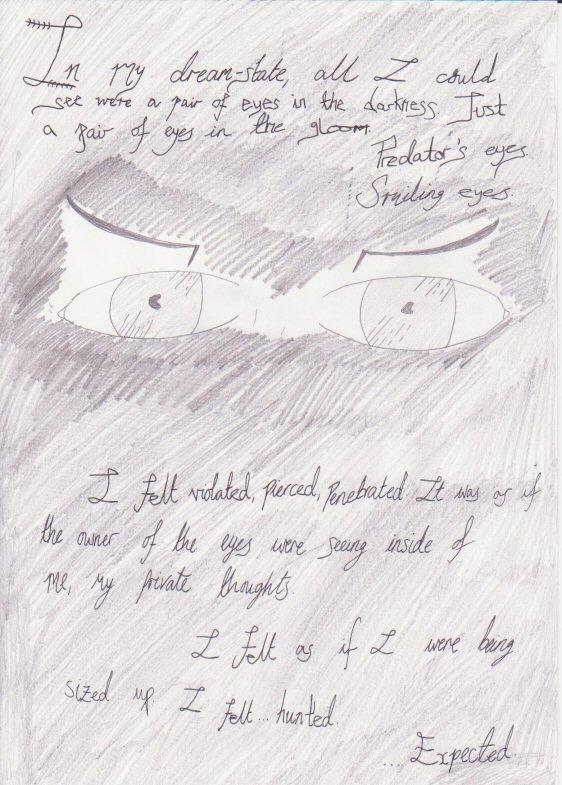 In my dream-state, all I could
see were a pair of eyes in the darkness. Just
a pair of eyes in the gloom.
Predator's eyes.
Smiling eyes.
I felt violated, pierced, penetrated. It was as if
the owner of the eyes were seeing inside of
me, my private thoughts.
I felt as if I were being
sized up. I felt... hunted.
... Expected.